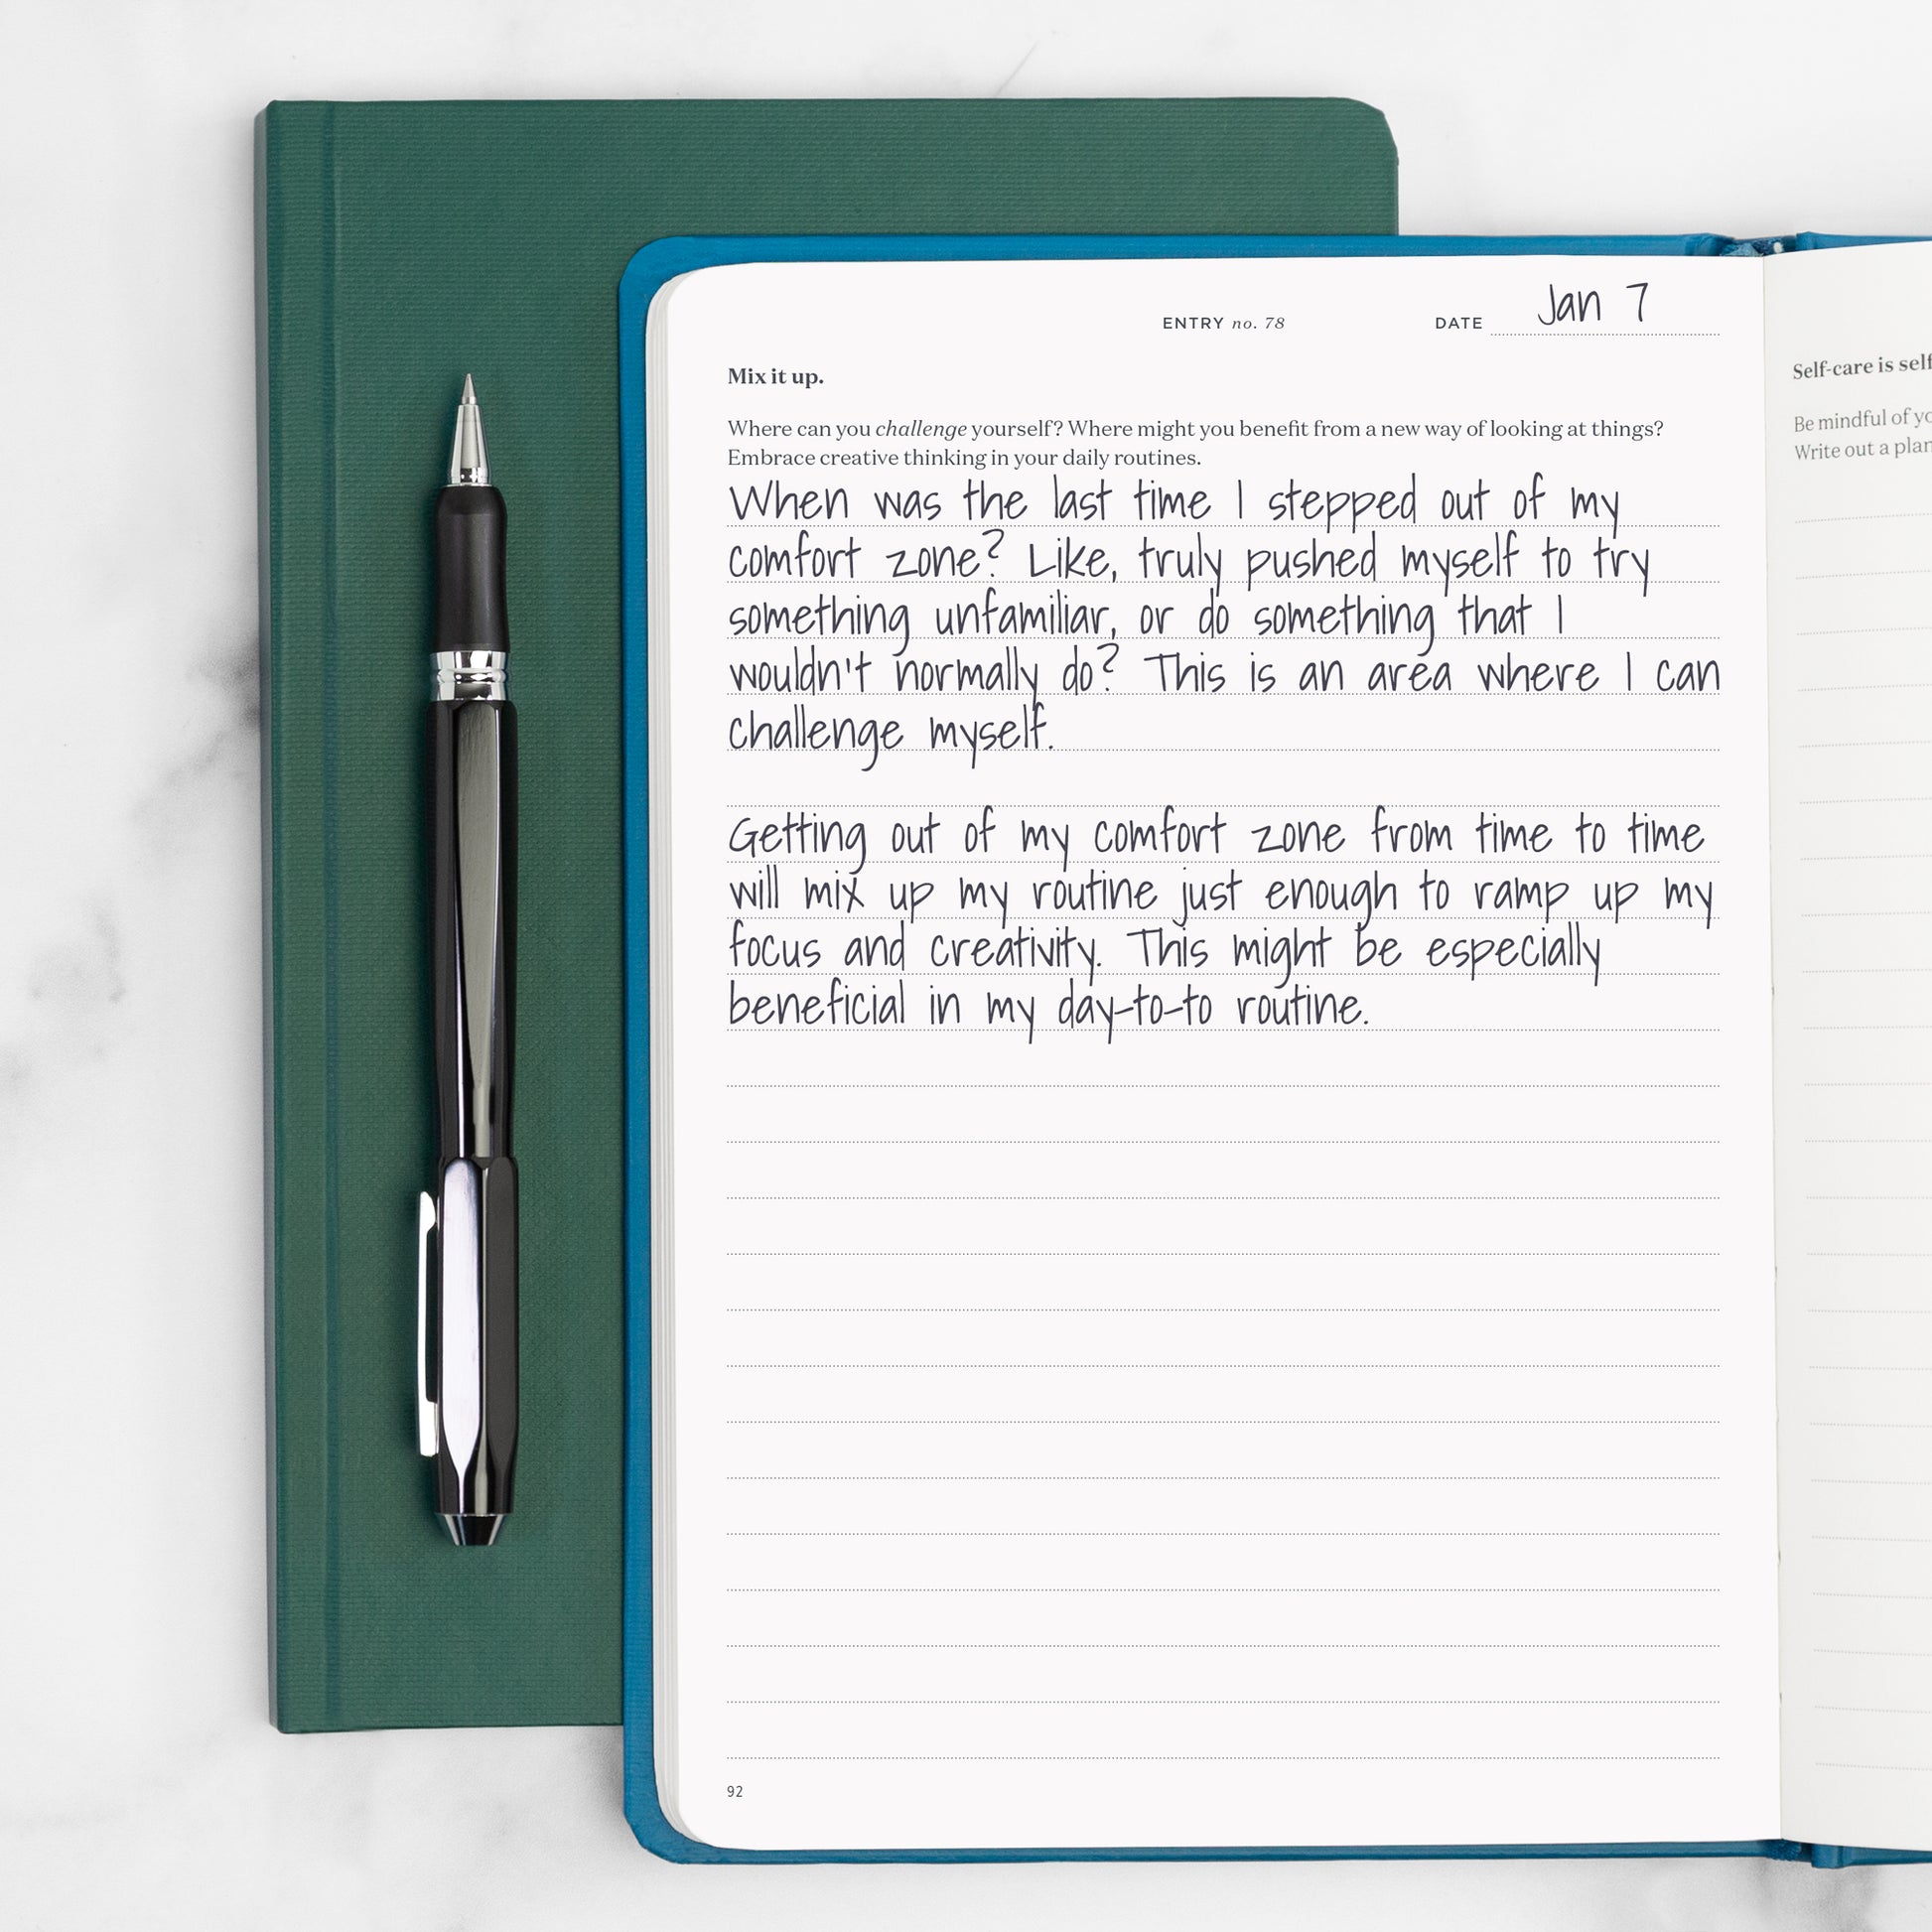 ENTRY no. 78 DATE Jan 7
Mix it up.
Where can you challenge yourself? Where might you benefit from a new way of looking at things?
Embrace creative thinking in your daily routines.
When was the last time I stepped out of my
comfort zone? Like, truly pushed myself to try
something unfamiliar, or do something that I
wouldn't normally do? This is an area where I can
challenge myself.
Getting out of my comfort zone from time to time
will mix up my routine just enough to ramp up my
focus and creativity. This might be especially
beneficial in my day-to-to routine.
92
Self-care is
Be mindful of
Write out a